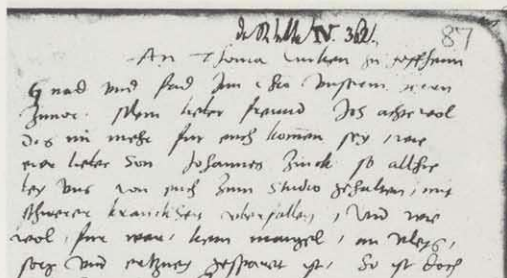 de Wette IV. 362. 87
An Thoma Zinken zu Hoffheim
Gnad und frid Inn Christo unserm herrn
Zuuor. Mein lieber freund Ich achte wol
das nu mehr fur euch komen sey, wie
ewr lieber Son Johannes Zinck so alhie
bey uns von euch zum studio gehalten, mit
schwerer kranckheit uberfallen, Und wie
wol, fur war, kein mangel, an vleys,
sorg und ertzney gesparet ist, So ist doch